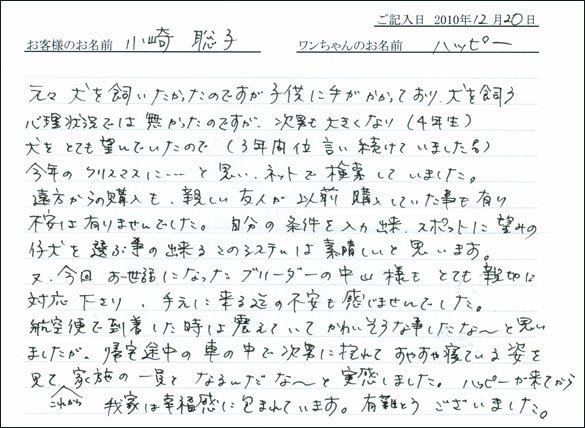 ご記入日 2010年12月20日
お客様のお名前 小崎 聡子 ワンちゃんのお名前 ハッピー
元々 犬を飼いたかったのですが子供に手がかかっており、犬を飼う
心理状況では無かったのですが、次男も大きくなり(4年生)
犬をとても望んでいたので(3年間位言い続けていましたる)
今年のクリスマスに---と思い、ネットで検索していました。
遠方からの購入も、親しい友人が以前購入していた事も有り
不安は有りませんでした。自分の条件を入力出来、スポットに望みの
仔犬を選ぶ事の出来るこのシステムは素晴しいと思います。
又、今回お世話になったブリーダーの中山様もとても親切に
対応下さり、手元に来る迄の不安も感じませんでした。
航空便で到着した時は震えていてかわいそうな事したな〜と思い
ましたが、帰宅途中の車の中で次男に抱れてすやすや寝ている姿を
見て家族の一員となるんだな〜と実感しました。ハッピーが来てから
これから 我家は幸福感に包まれています。有難とうございました。